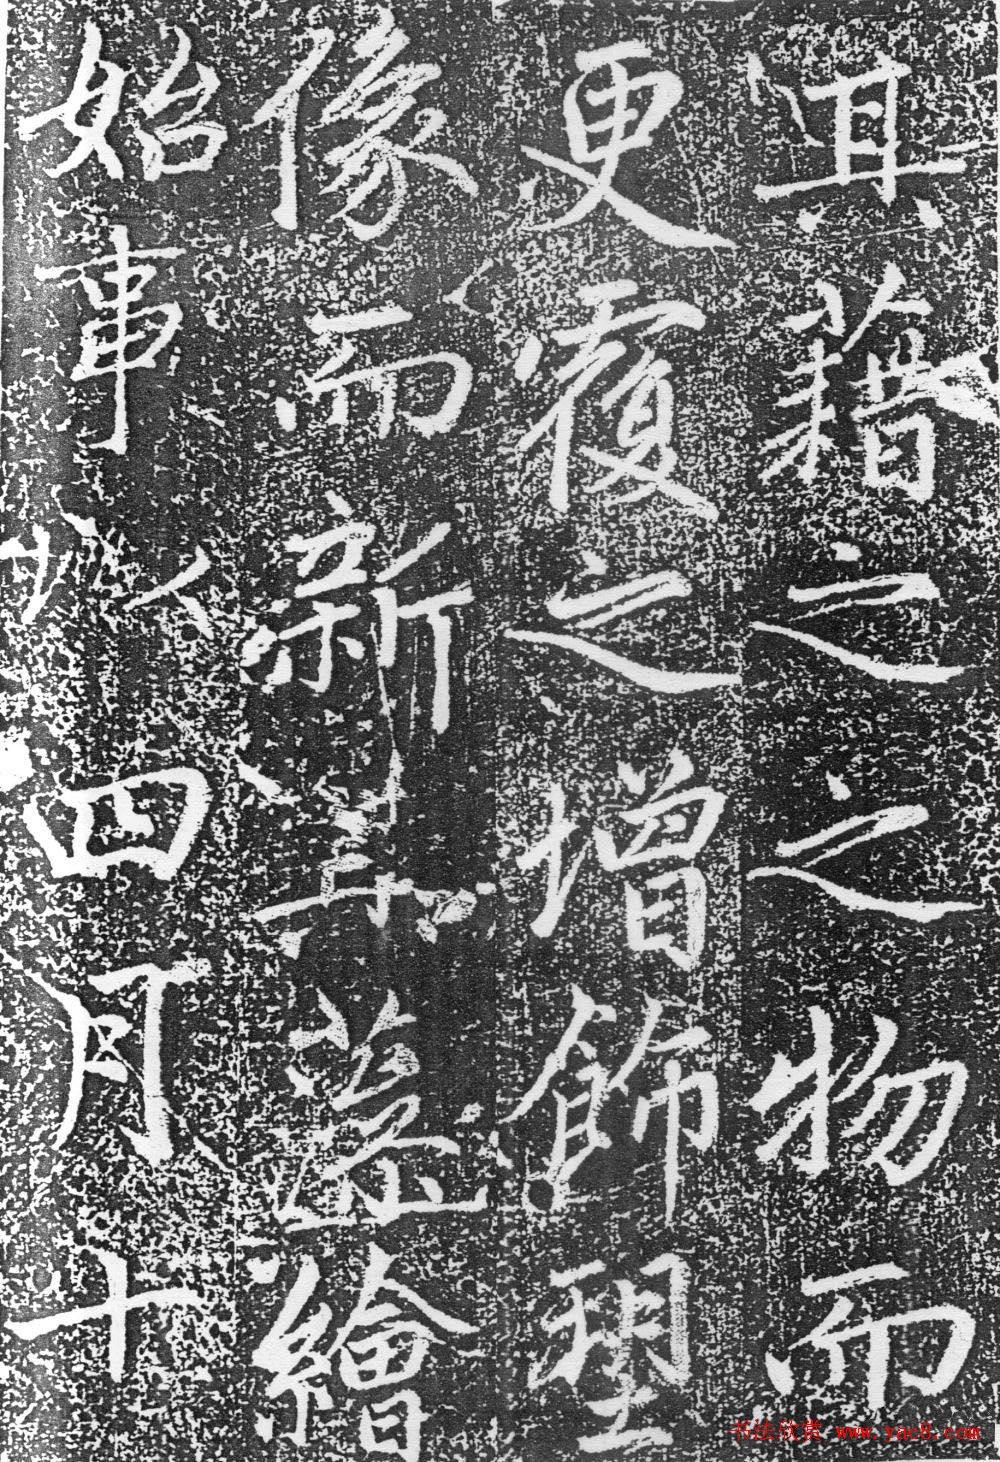 其藉之之物而
更覆之增飾塑
像而新其蓋繪
始事於四月十
书法欣赏 www.yac8.com